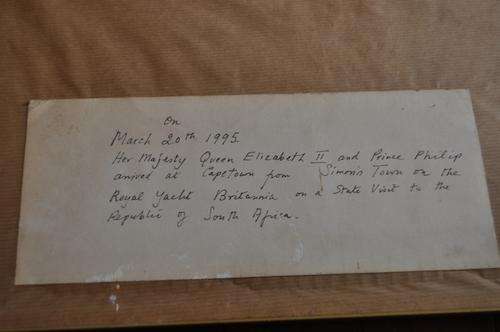 On
March 20th 1995.
Her Majesty Queen Elizabeth II and Prince Philip
arrived at Capetown from Simons Town on the
Royal Yacht Britannia on a State Visit to the
Republic of South Africa.